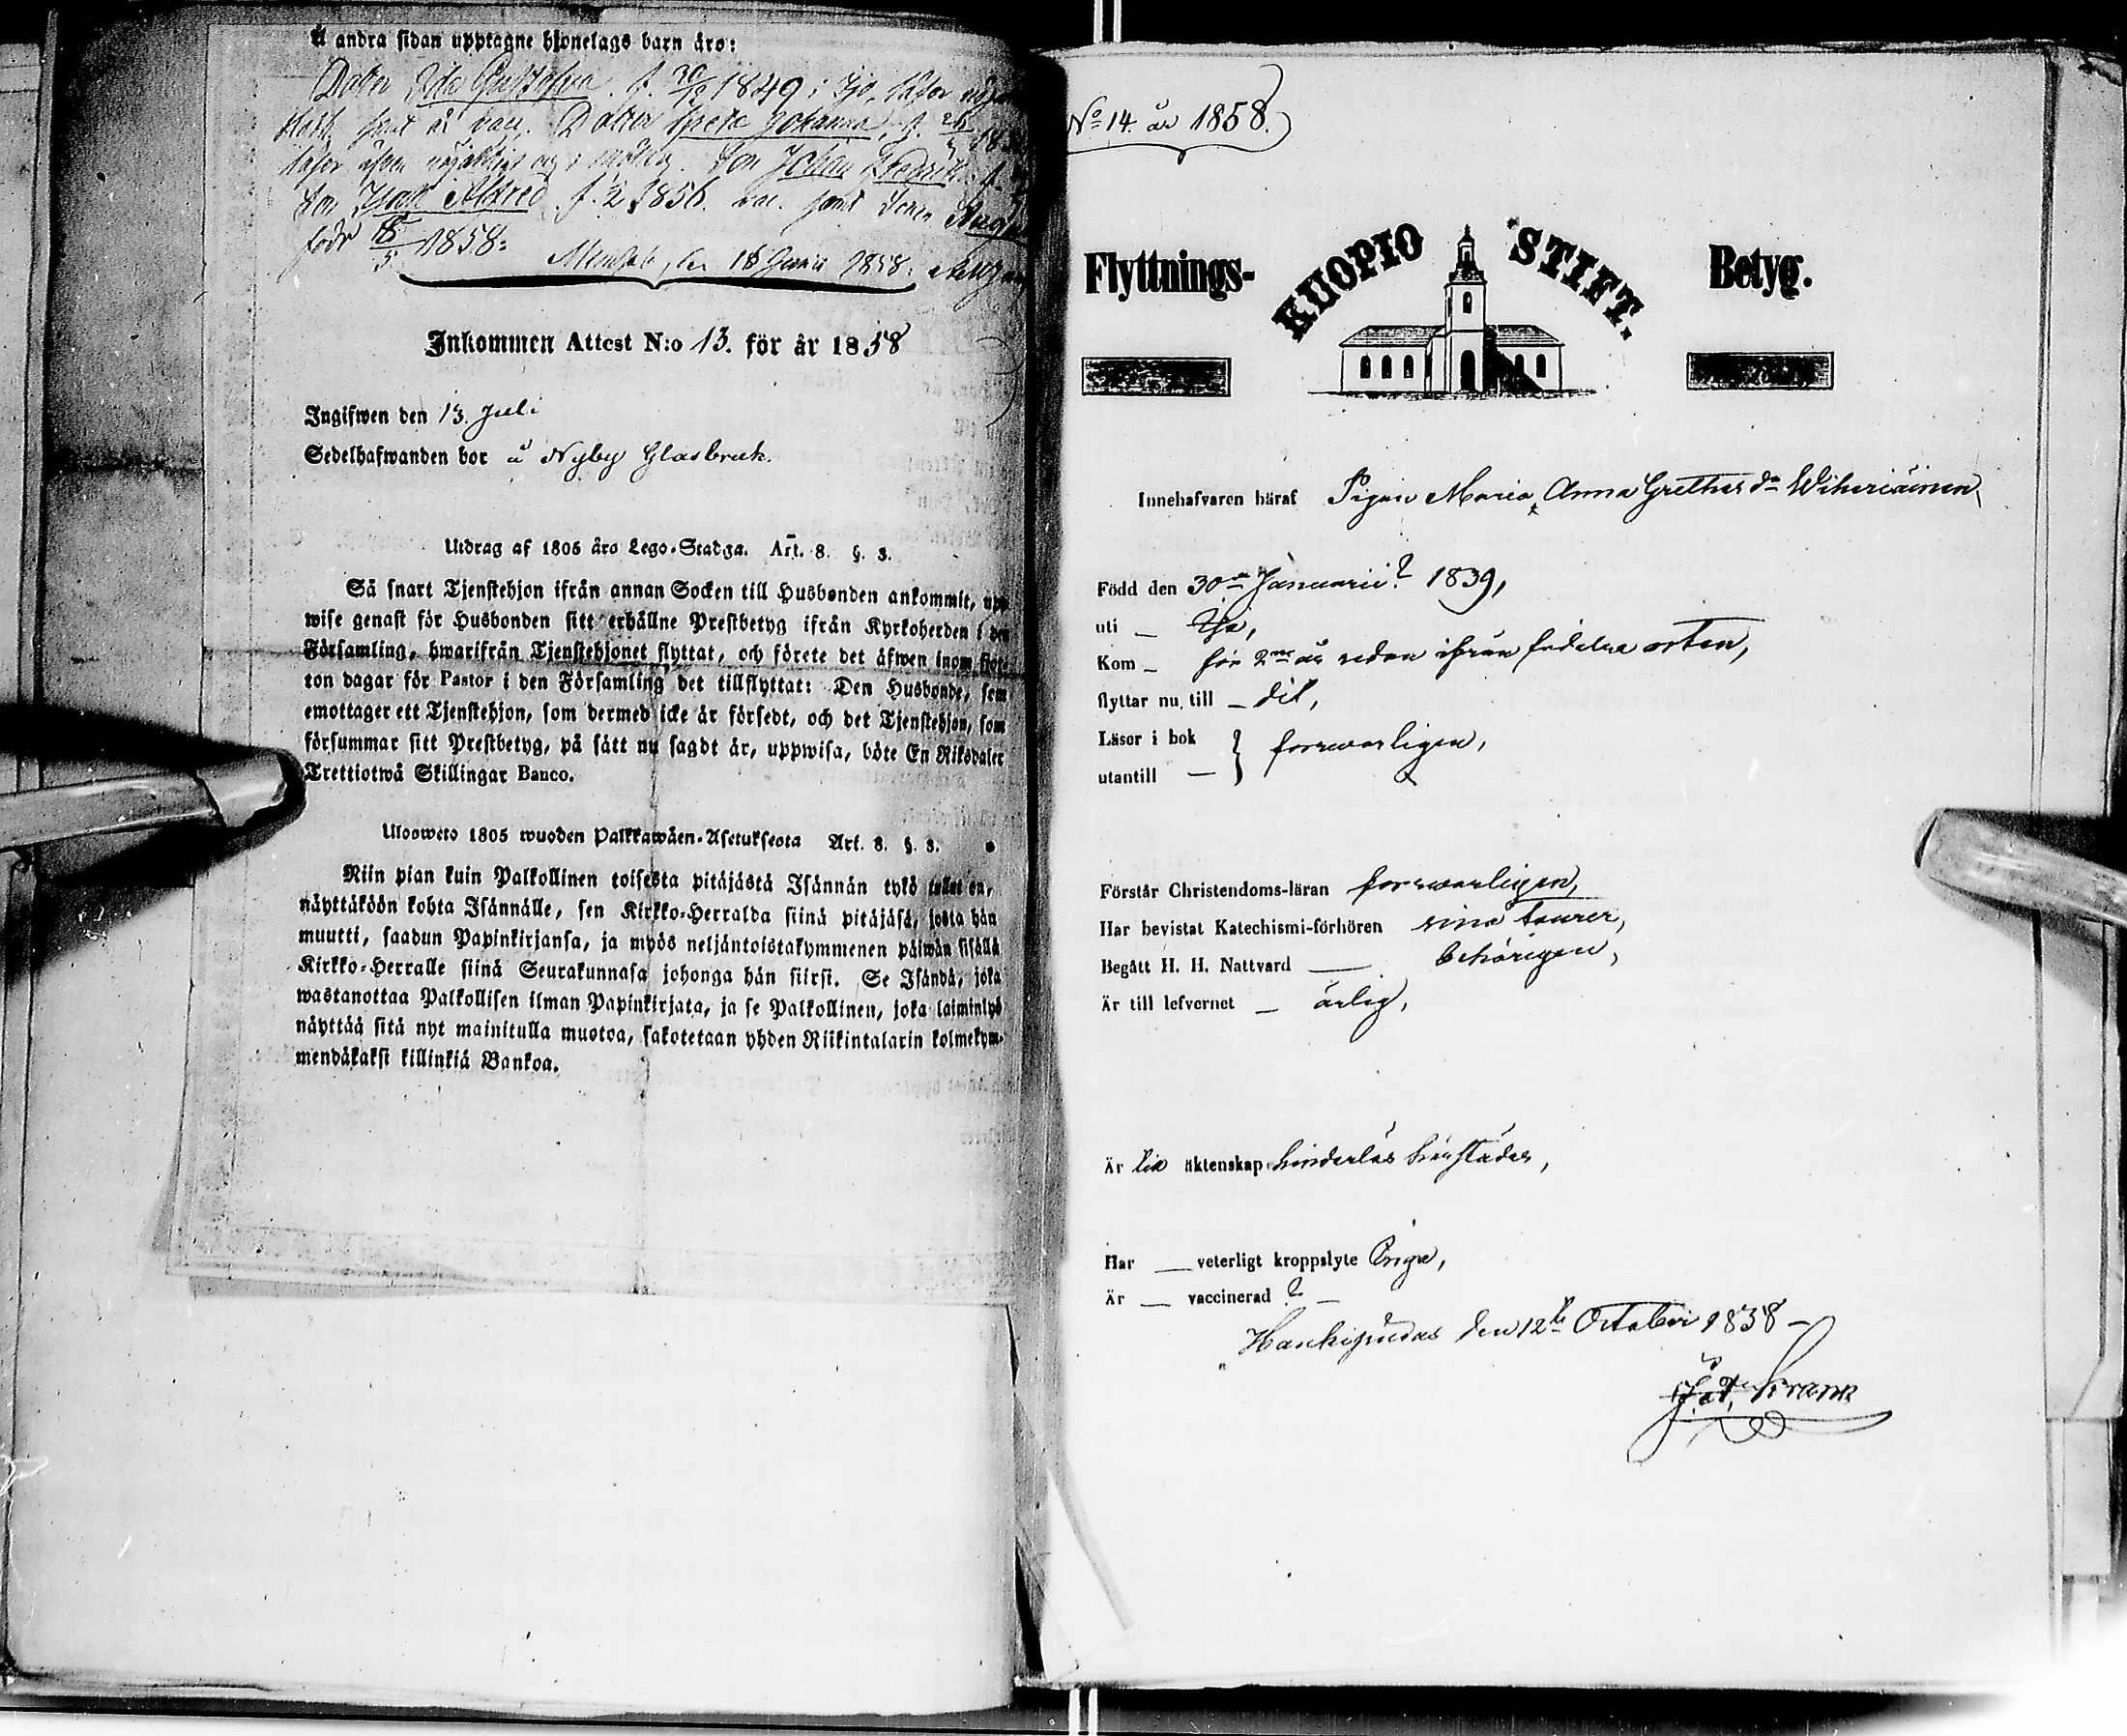 Å andra sidan upptagne hjonelags barn äro:
Dotter Ida Gustafva. f. 20/12 1849 i Ijo, läser
samt är vacc. Dotter Greta Johanna, f. 26
läser äfven Son Johan Fredrik f.
Son Isak Alfred f. 1856. vac. samt Sonen Aug
född 18/5 1858. den 16 Junii 1858.
Inkommen Attest N:o 13. för år 1858
Ingifwen den 13. Juli
Sedelhafwanden bor å Nyby Glasbruk.
Utdrag af 1805 års Lego-Stadga. Art. 8. §. 3.
Så snart Tjenstehjon ifrån annan Socken till Husbonden ankommit, upp
wise genast för Husbonden sitt erhållne Prestbetyg ifrån Kyrkoherden i den
Församling, hwarifrån Tjenstehjonet flyttat, och förete det äfwen inom fjor-
ton dagar för Pastor i den Församling det tillflyttat: Den Husbonde, som
emottager ett Tjenstehjon, som dermed icke är försedt, och det Tjenstehjon, som
försummar sitt Prestbetyg, på sätt nu sagdt är, uppwisa, böte En Riksdaler
Trettiotwå Skillingar Banco.
Ulosweto 1805 wuoden Palkkawäen-Asetuksesta Art. 8. §. 3.
Niin pian kuin Palkollinen toisesta pitäjästä Isännän tykö tullut on,
näyttäköön kohta Isännälle, sen Kirkko-Herralda siinä pitäjäsä, josta hän
muutti, saadun Papinkirjansa, ja myös neljäntoistakymmenen päiwän sisällä
Kirkko-Herralle siinä Seurakunnasa johonga hän siirsi. Se Isändä, joka
wastanottaa Palkollisen ilman Papinkirjata, ja se Palkollinen, joka laiminlyö
näyttää sitä nyt mainitulla muotoa, sakotetaan yhden Riikintalarin kolmekym-
mendäkaksi killinkiä Bankoa.
No 14. år 1858.
Flyttnings- KUOPIO STIFT. Betyg.
Innehafvaren häraf Pigan Maria Anna Grethas dr Wiheriäinen,
Född den 30de Januarii? 1839,
uti Ijo,
Kom för 2ne år sedan ifrån födelse orten,
flyttar nu till dit,
Läser i bok
utantill } försvarligen,
Förstår Christendoms-läran försvarligen,
Har bevistat Katechismi-förhören sina tourer,
Begått H. H. Nattvard behörigen,
Är till lefvernet ärlig,
Är till äktenskap hinderlös härstädes,
Har veterligt kroppslyte Inga,
Är vaccinerad ?
Haukipudas den 12te Octobri 1858
Frans